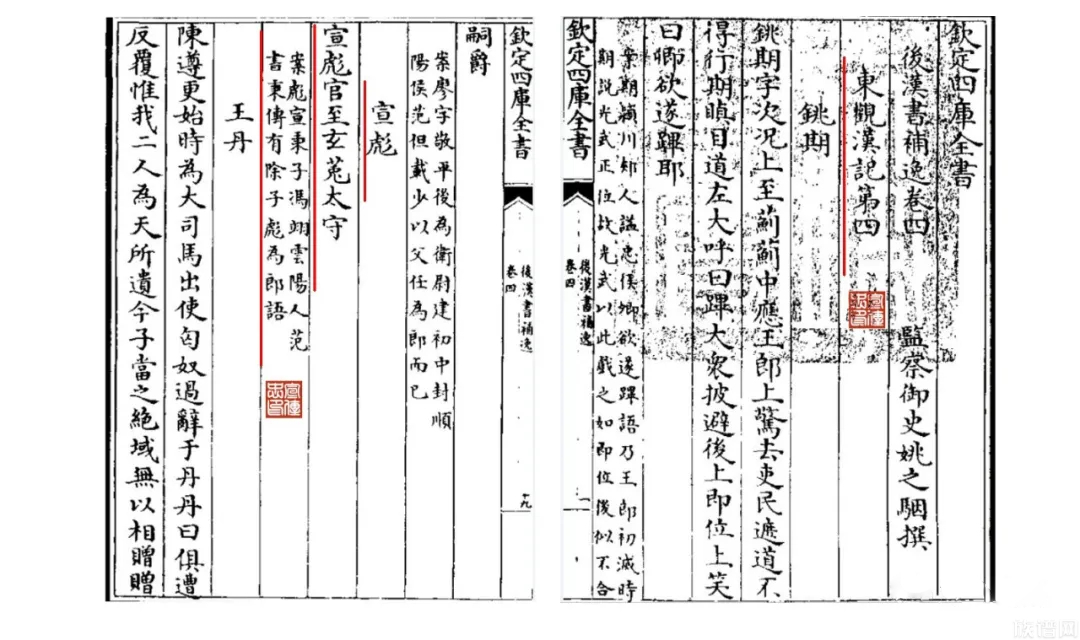 欽定四庫全書
後漢書補逸卷四
監察御史姚之駰撰
東觀漢記第四
銚期
銚期字次況上至薊薊中應王郎上驚去吏民遮道不
得行期瞋目道左大呼曰蹕大衆披避後上即位上笑
曰卿欲遂蹕耶
案期潁川郟人諡忠侯卿欲遂蹕語乃王郎初滅時
期説光武正位故光武以此戲之如即位後似不合
欽定四庫全書
後漢書補逸
卷四
一
欽定四庫全書
後漢書補逸
卷四
十九
嗣爵
案廖字敬平後為衛尉建初中封順
陽侯范但載少以父任為郎而已
宣彪
宣彪官至玄菟太守
案彪宣秉子馮翊雲陽人范
書秉傳有除子彪為郎語
王丹
陳遵更始時為大司馬出使匈奴過辭于丹丹曰俱遭
反覆惟我二人為天所遺今子當之絶域無以相贈贈
族譜网